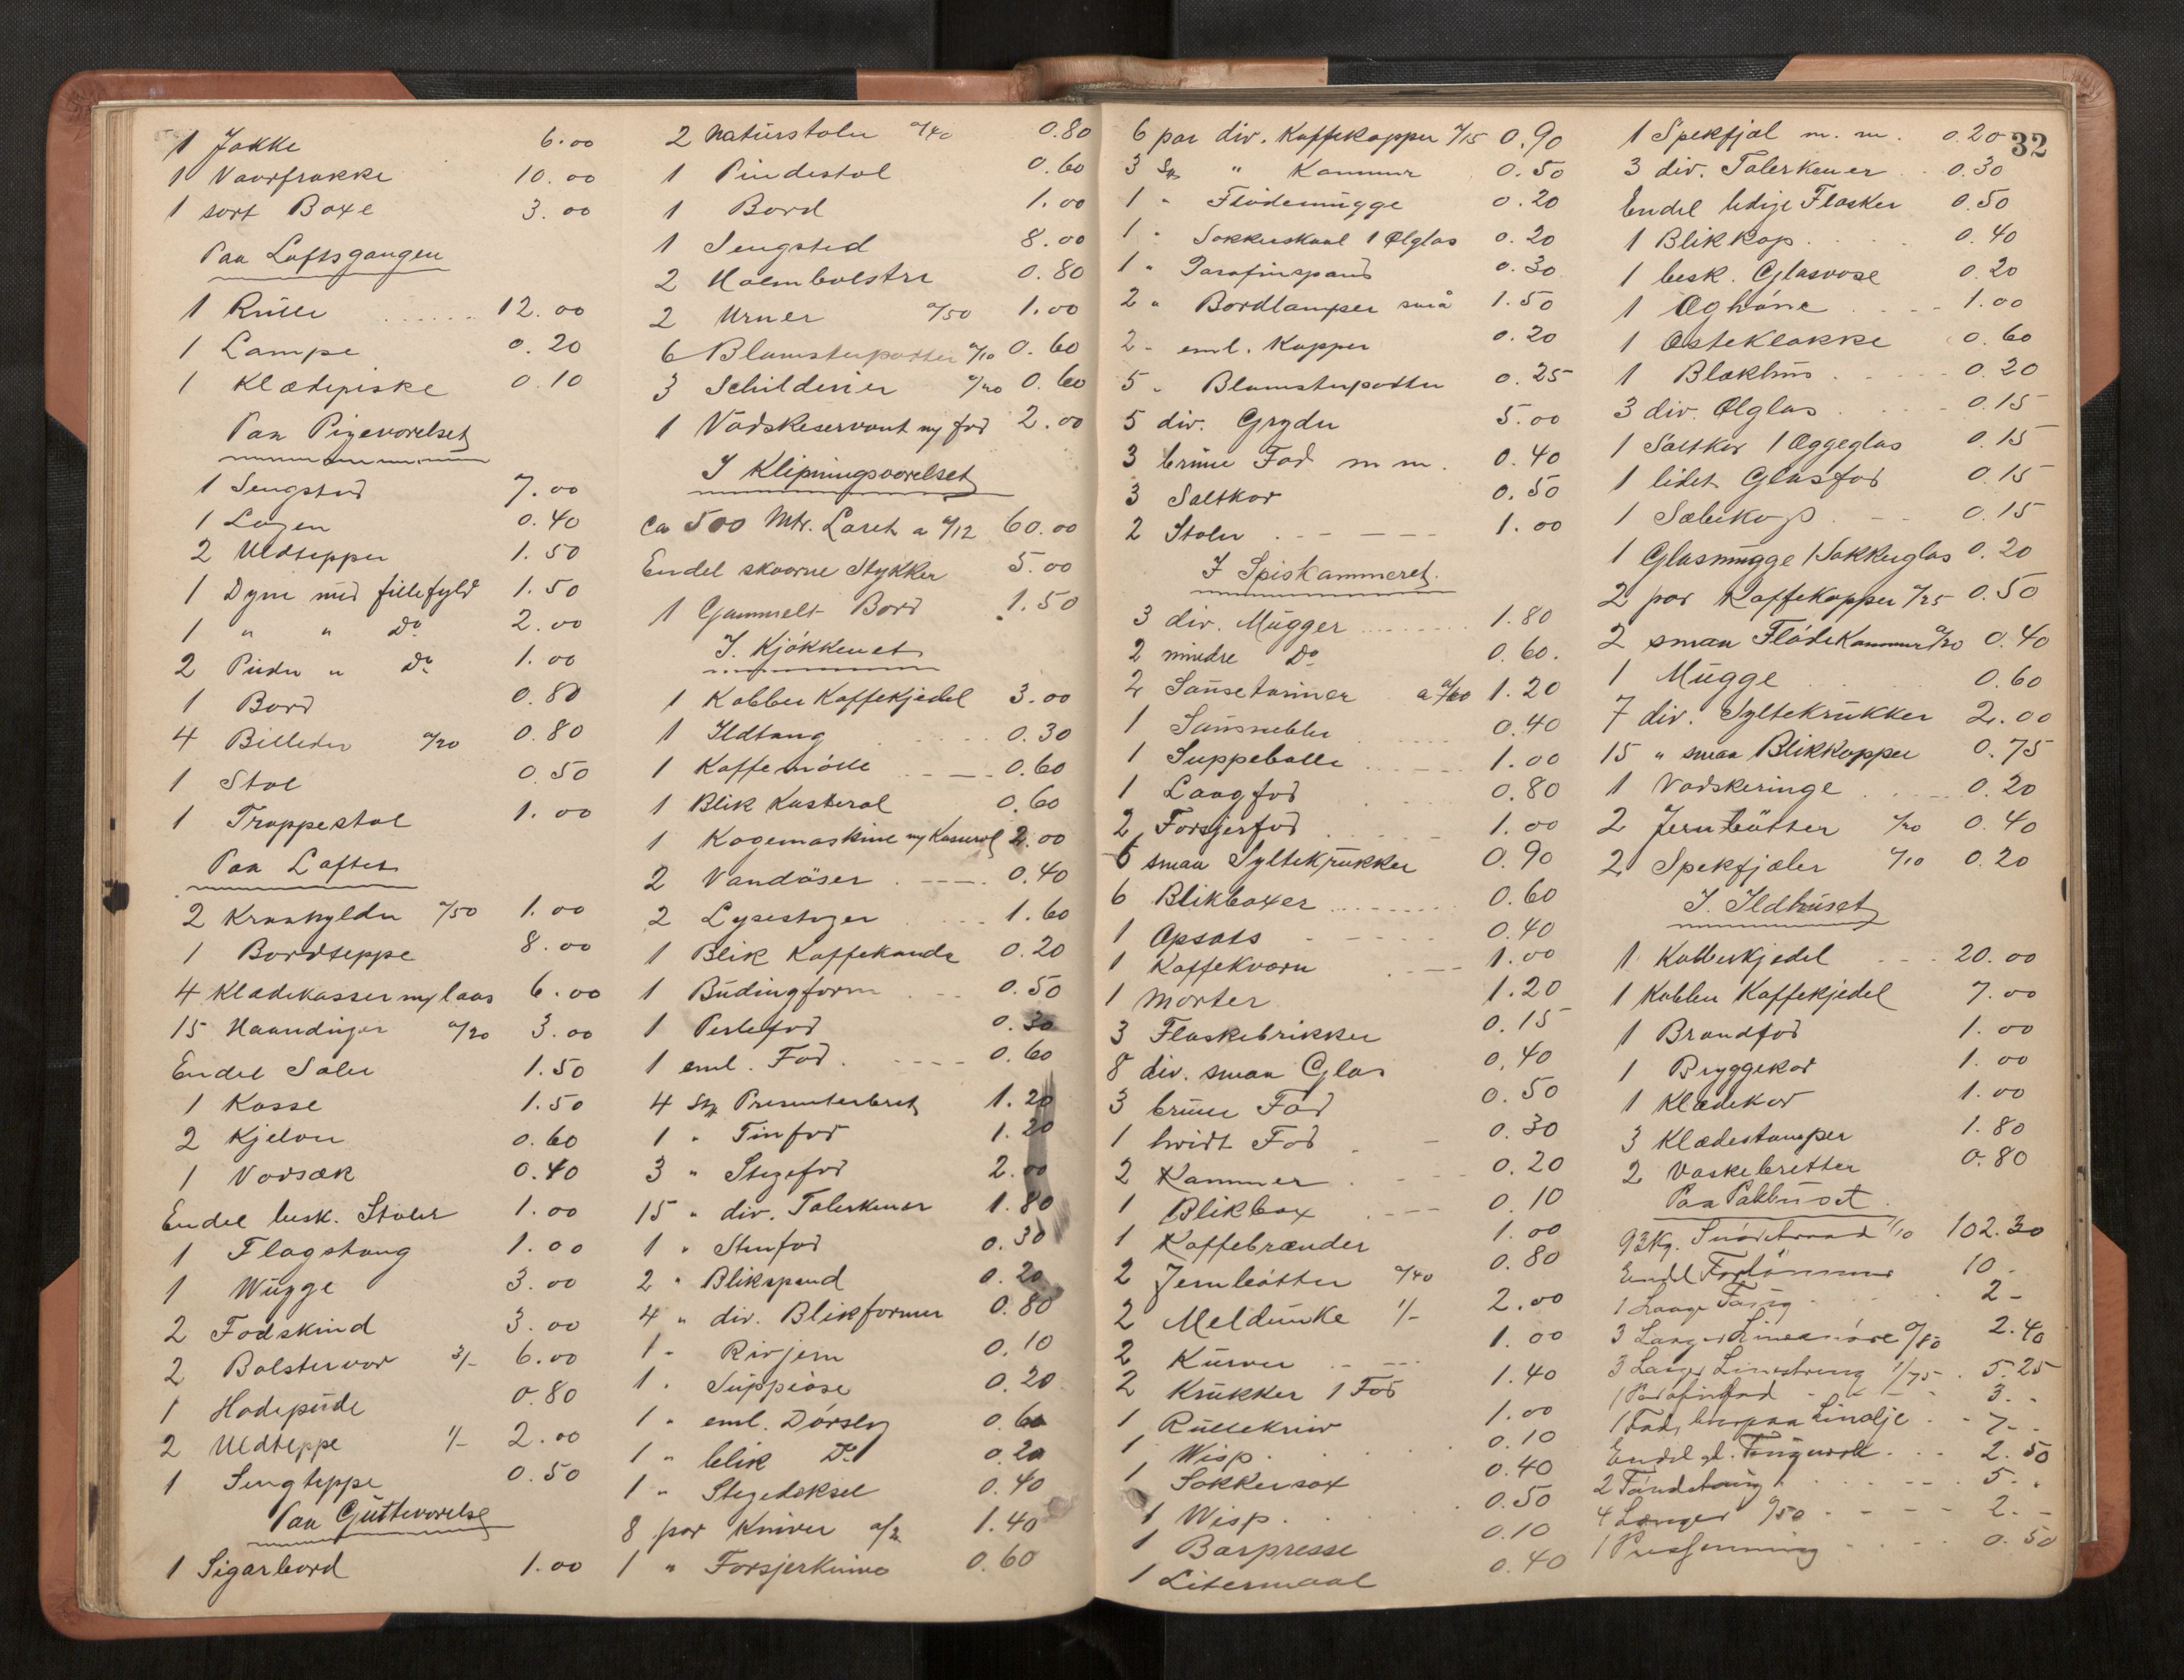 1 Jakke 6.00
1 Vaarfrakke 10.00
1 sort Boxe 3.00
Paa Loftsgangen
1 Rulle 12.00
1 Lampe 0.20
1 Klædepiske 0.10
Paa Pigeværelset
1 Sengsted 7.00
1 Lagen 0.40
2 Uldtepper 1.50
1 Dyne med fillefyld 1.50
1 " " Do 2.00
2 Puder " Do 1.00
1 Bord 0.80
4 Billeder a/20 0.80
1 Stol 0.50
1 Trappestol 1.00
Paa Loftet
2 Kraahylder a/50 1.00
1 Bordteppe 8.00
4 Klædekasser m/ laas 6.00
15 Haandinger a/20 3.00
Endel Saler 1.50
1 Kasse 1.50
2 Kjelom 0.60
1 Vadsæk 0.40
Endel besk. Stoler 1.00
1 Flagstang 1.00
1 Wugge 3.00
2 Fodskind 3.00
2 Bolstervor 3/- 6.00
1 Hodepude 0.80
2 Uldteppe 1/- 2.00
1 Sengteppe 0.50
Paa Gutteværelse
1 Sigarbord 1.00
2 Naturstoler a/40 0.80
1 Pindestol 0.60
1 Bord 1.00
1 Sengsted 8.00
2 Halmbolstre 0.80
2 Urner a/50 1.00
6 Blomsterpotter a/10 0.60
3 Schilderier a/20 0.60
1 Vadskeservant m/ fad 2.00
I Klipningsværelset
Ca 500 Mtr. Læret a a/12 60.00
Endel skaarne Stykker 5.00
1 Gammelt Bord 1.50
I. Kjøkkenet
1 Kobber Kaffekjedel 3.00
1 Ildtang 0.30
1 Kaffemølle 0.60
1 Blik Kasterol 0.60
1 Kogemaskine m/ Kaserol 2.00
2 Vandøser 0.40
2 Lysestager 1.60
1 Blik Kaffekande 0.20
1 Budingform 0.50
1 Perlefad 0.30
1 eml. Fad 0.60
4 Stk Presenterbret 1.20
1 " Tinfad 1.20
3 " Stegefad 2.00
15 " div. Talerkener 1.80
1 " Stenfad 0.30
2 " Blikspand 0.20
4 " div. Blikformer 0.80
1 " Rivjern 0.10
1 " Suppeøse 0.20
1 " eml. Dørslag 0.60
1 " blik Do 0.20
1 " Stegedeksel 0.40
8 par Kniver 1.40
1 " Forsjerknive 0.60
6 par div. Kaffekopper a/15 0.90
3 Stk " Kammer 0.50
1 " Flødemugge 0.20
1 " Sokkerskaal 1 Ølglas 0.20
1 " Parafinspand 0.30
2 " Bordlamper små 1.50
2 " eml. Kopper 0.20
5 " Blomsterpotter 0.25
5 div. Gryder 5.00
3 brune Fad m m. 0.40
3 Saltkar 0.50
2 Stoler 1.00
I Spiskammeret.
3 div. Mugger 1.80
2 mindre Do 0.60.
2 Sauseteriner a a/60 1.20
1 Sausnebbe 0.40
1 Suppebolle 1.00
1 Langfad 0.80
2 Forsjerfad 1.00
6 smaa Syltekrukker 0.90
6 Blikboxer 0.60
1 Opsats 0.40
1 Kaffekværn 1.00
1 Morter 1.20
3 Flaskebrikker 0.15
8 div. smaa Glas 0.40
3 brune Fad 0.50
1 hvidt Fad 0.30
2 Kammer 0.20
1 Blikbox 0.10
1 Kaffebrænder 1.00
2 Jernbøtter a/40 0.80
2 Meldunke 1/- 2.00
2 Kurver 1.00
2 Krukker 1 Fad 1.40
1 Rullekniv 1.00
1 Wisp 0.10
1 Sokkersax 0.40
1 Wisp 0.50
1 Bærpresse 0.10
1 Litermaal 0.40
32
1 Spekfjæl m. m. 0.20
3 div. Talerkener 0.30
Endel ledige Flasker 0.50
1 Blikkop 0.40
1 besk. Glasvase 0.20
1 Æghøne 1.00
1 Osteklokke 0.60
1 Blækhus 0.20
3 div. Ølglas 0.15
1 Saltkar 1 Æggeglas 0.15
1 lidet Glasfad 0.15
1 Sæbekop 0.15
1 Glasmugge 1 Sokkerglas 0.20
2 par Kaffekopper a/25 0.50
2 smaa Flødekammer a/20 0.40
1 Mugge 0.60
7 div. Syltekrukker 2.00
15 " smaa Blikkopper 0.75
1 Vadskeringe 0.20
2 Jernbøtter a/20 0.40
2 Spekfjæler a/10 0.20
I. Ildhuset
1 Kobberkjedel 20.00
1 Kobber Kaffekjedel 7.00
1 Brandfad 1.00
1 Bryggekar 1.00
1 Klædekar 1.00
3 Klædestamper 1.80
2 Vaskebretter 0.80
Paa Pakhuset
93 Kg. Snøretraad 1/10 102.30
Endel Fortømmer 10.
1 Lange Taug 2-
3 Langer Linesnøre a/80 2.40
3 Langer Linestreng 1/75 5.25
1 Parafinfad 3.-
1 Fad, hvorpaa Linolje 7-.
Endel gl. Taugverk 2.50
2 5-.
4 Længer a/50 2.-
1 Presenning 0.50